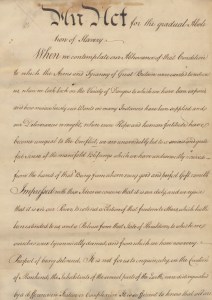 An Act for the gradual Aboli
tion of Slavery
When we contemplate our Abhorrence of that Condition
to which the Arms and Tyranny of Great Britain were exerted to reduce
us, when we look back on the Variety of Dangers to which we have been exposed
and how miraculously our Wants in many Instances have been supplied and
our Deliverances wrought, when even Hope and human fortitude have be
come unequal to the Conflict, we are unavoidably led to a serious and grate
ful sense of the manifold Blessings which we have undeservedly received
from the hand of that Being from whom every good and perfect Gift cometh
Impressed with these Ideas we conceive that it is our duty, and we rejoice
that it is in our Power, to extend a Portion of that freedom to others, which hath
been extended to us, and a Release from that State of Thraldom, to which we
ourselves were tyrannically doomed, and from which we have now every
Prospect of being delivered. It is not for us to enquire why, in the Creation
of Mankind, the Inhabitants of the several parts of the Earth, were distinguished
by a difference in Feature or Complexion. It is sufficient to know that all are